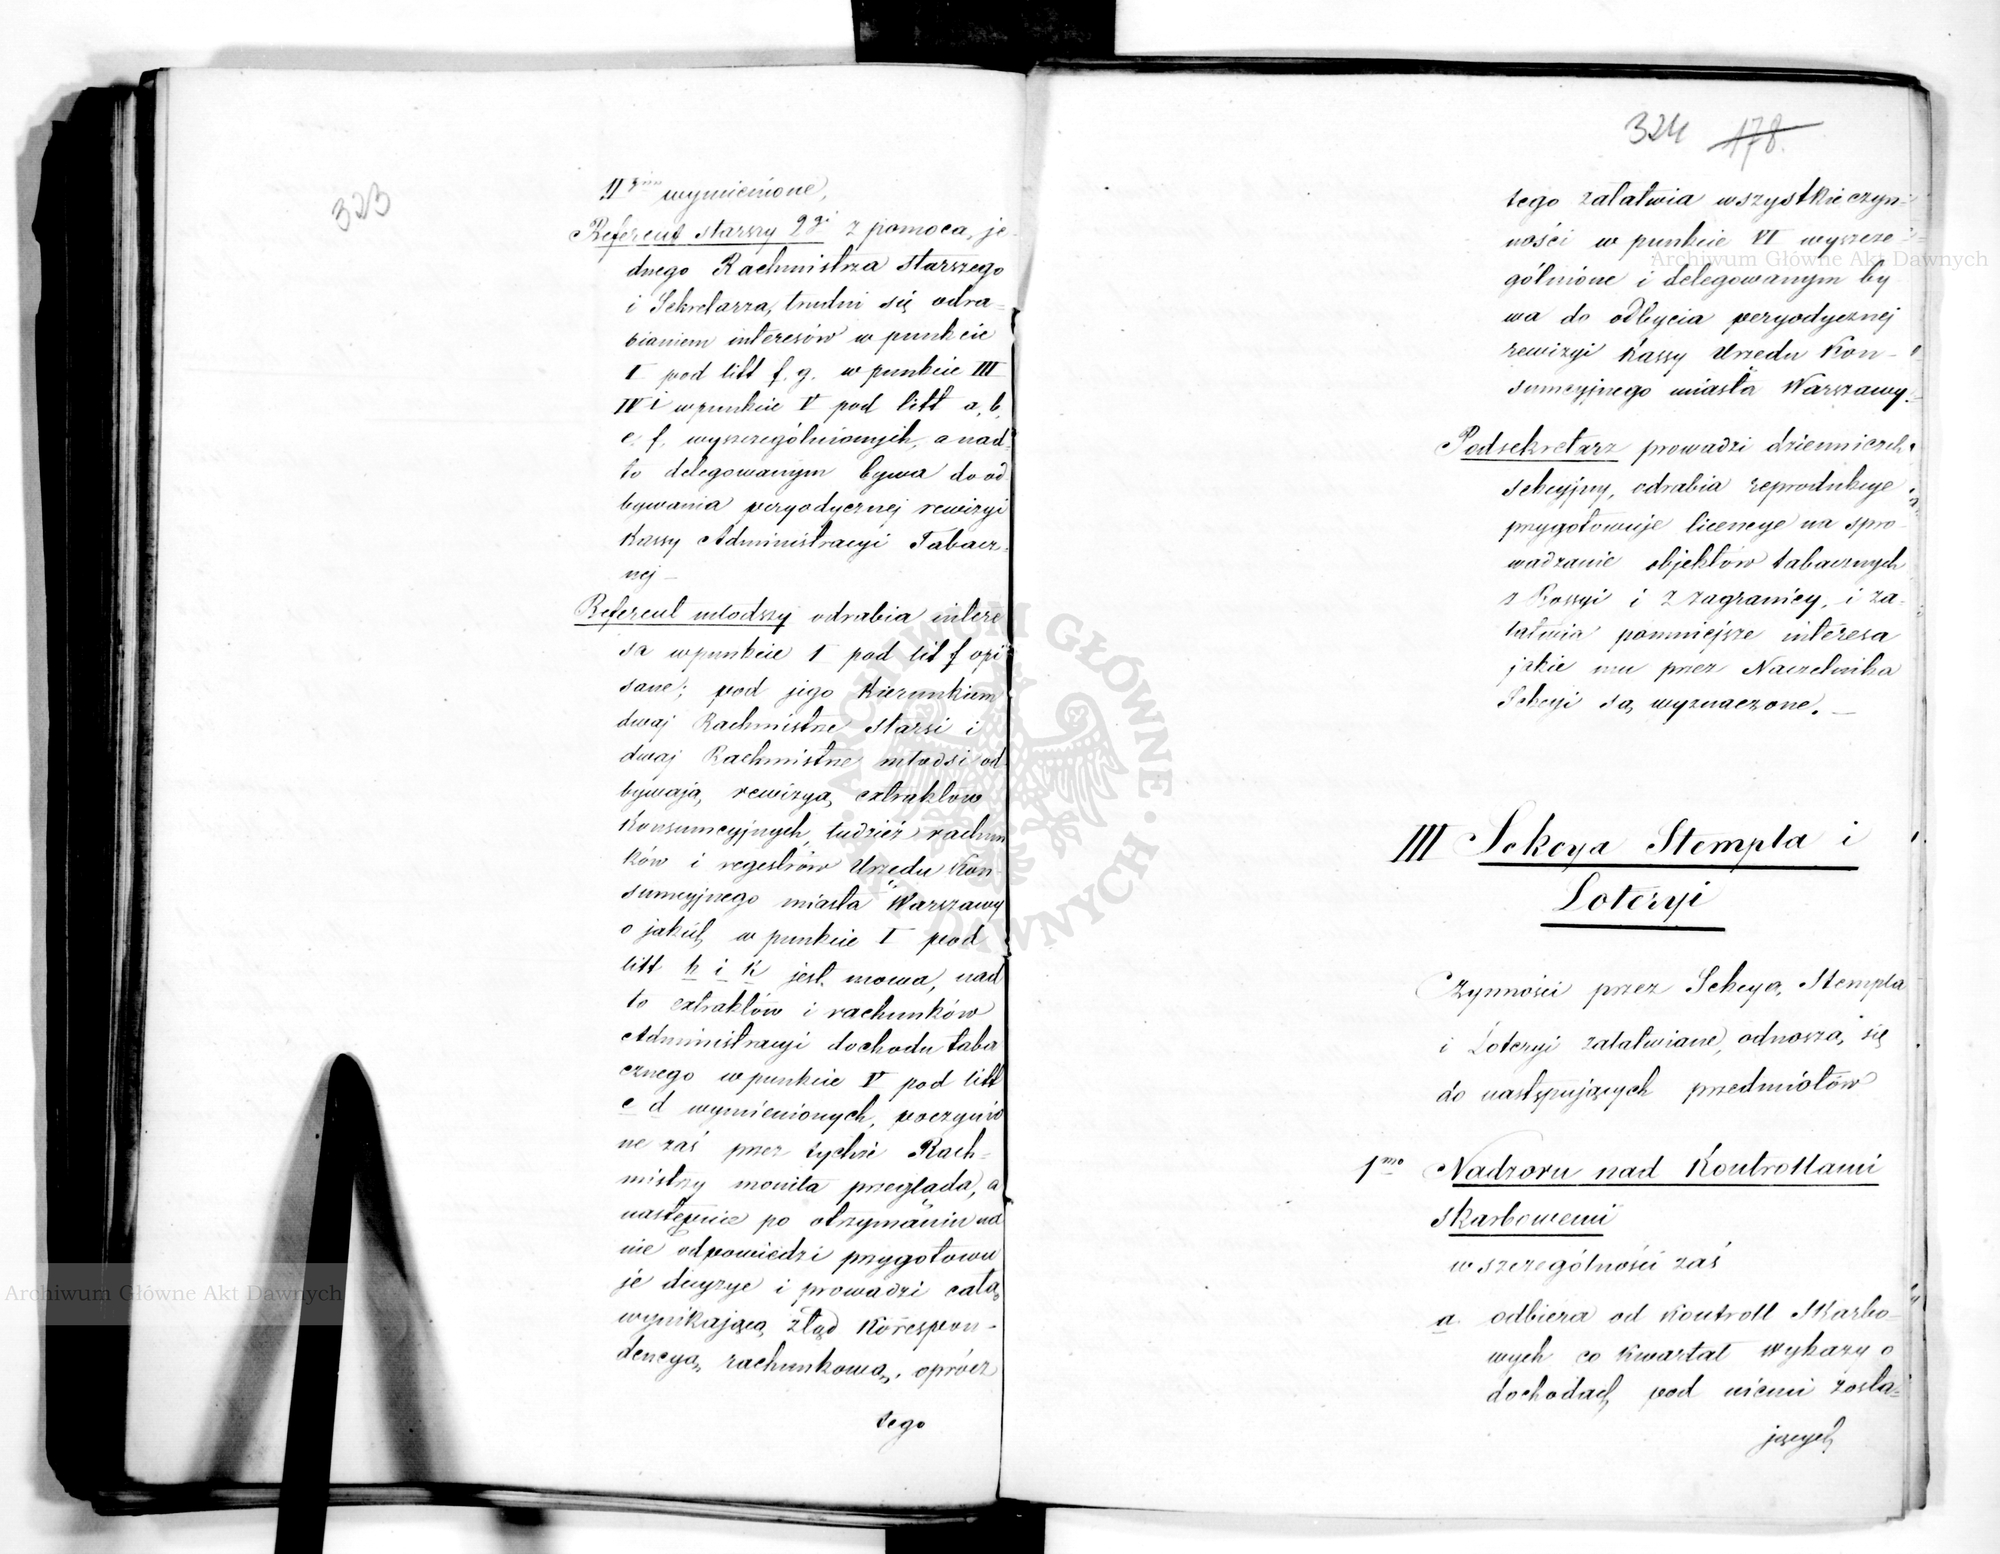 323
II go wymienione,
Referent starszy 2gi z pomocą je-
dnego Rachmistrza starszego
i Sekretarza, trudni się odra-
bianiem interesów w punkcie
I pod litt f. g. w punkcie III
IV i w punkcie V pod litt a, b,
e, f, wyszczególnionych, a nad-
to delegowanym bywa do od
bywania peryodycznej rewizyi
Kassy Administracyi Tabacz-
nej —
Referent młodszy odrabia intere
sa w punkcie I pod lit f opi
sane; pod jego Kierunkiem
dwaj Rachmistrze starsi i
dwaj Rachmistrze młodsi od
bywają rewizyą extraktów
Konsumcyjnych, tudzież rachun
ków i regestrów Urzędu Kon
sumcyjnego miasta Warszawy
o jakich w punkcie I pod
litt h i k jest mowa, nad
to extraktów i rachunków
Administracyi dochodu taba
cznego w punkcie V pod litt
c d wymienionych, poczynio
ne zaś przez tychże Rach-
mistrzy monita przegląda, a
następnie po otrzymaniu na
nie odpowiedzi przygotowu
je decyzye i prowadzi całą
wynikającą ztąd Korrespon-
dencyą rachunkową, oprócz
tego
324 178.
tego załatwia wszystkie czyn-
ności w punkcie VI wyszcze-
gólnione i delegowanym by
wa do odbycia peryodycznej
rewizyi Kassy Urzędu Kon-
sumcyjnego miasta Warszawy.
Podsekretarz prowadzi dzienniczek
sekcyjny, odrabia reprodukcye
przygotowuje licencye na spro-
wadzanie objektów tabacznych
z Rossyi i z zagranicy, i za-
łatwia pomniejsze interesa
jakie mu przez Naczelnika
Sekcyi są wyznaczone. —
III Sekcya Stempla i
Loteryi
Czynności przez Sekcyą Stempla
i Loteryi załatwiane, odnoszą się
do następujących przedmiotów
1mo Nadzoru nad Kontrollami
skarbowemi
w szczególności zaś
a. odbiera od Kontroll Skarbo-
wych co Kwartał wykazy o
dochodach pod niemi zosta-
jących
Archiwum Główne Akt Dawnych
Archiwum Główne Akt Dawnych
ARCHIWUM GŁÓWNE AKT DAWNYCH